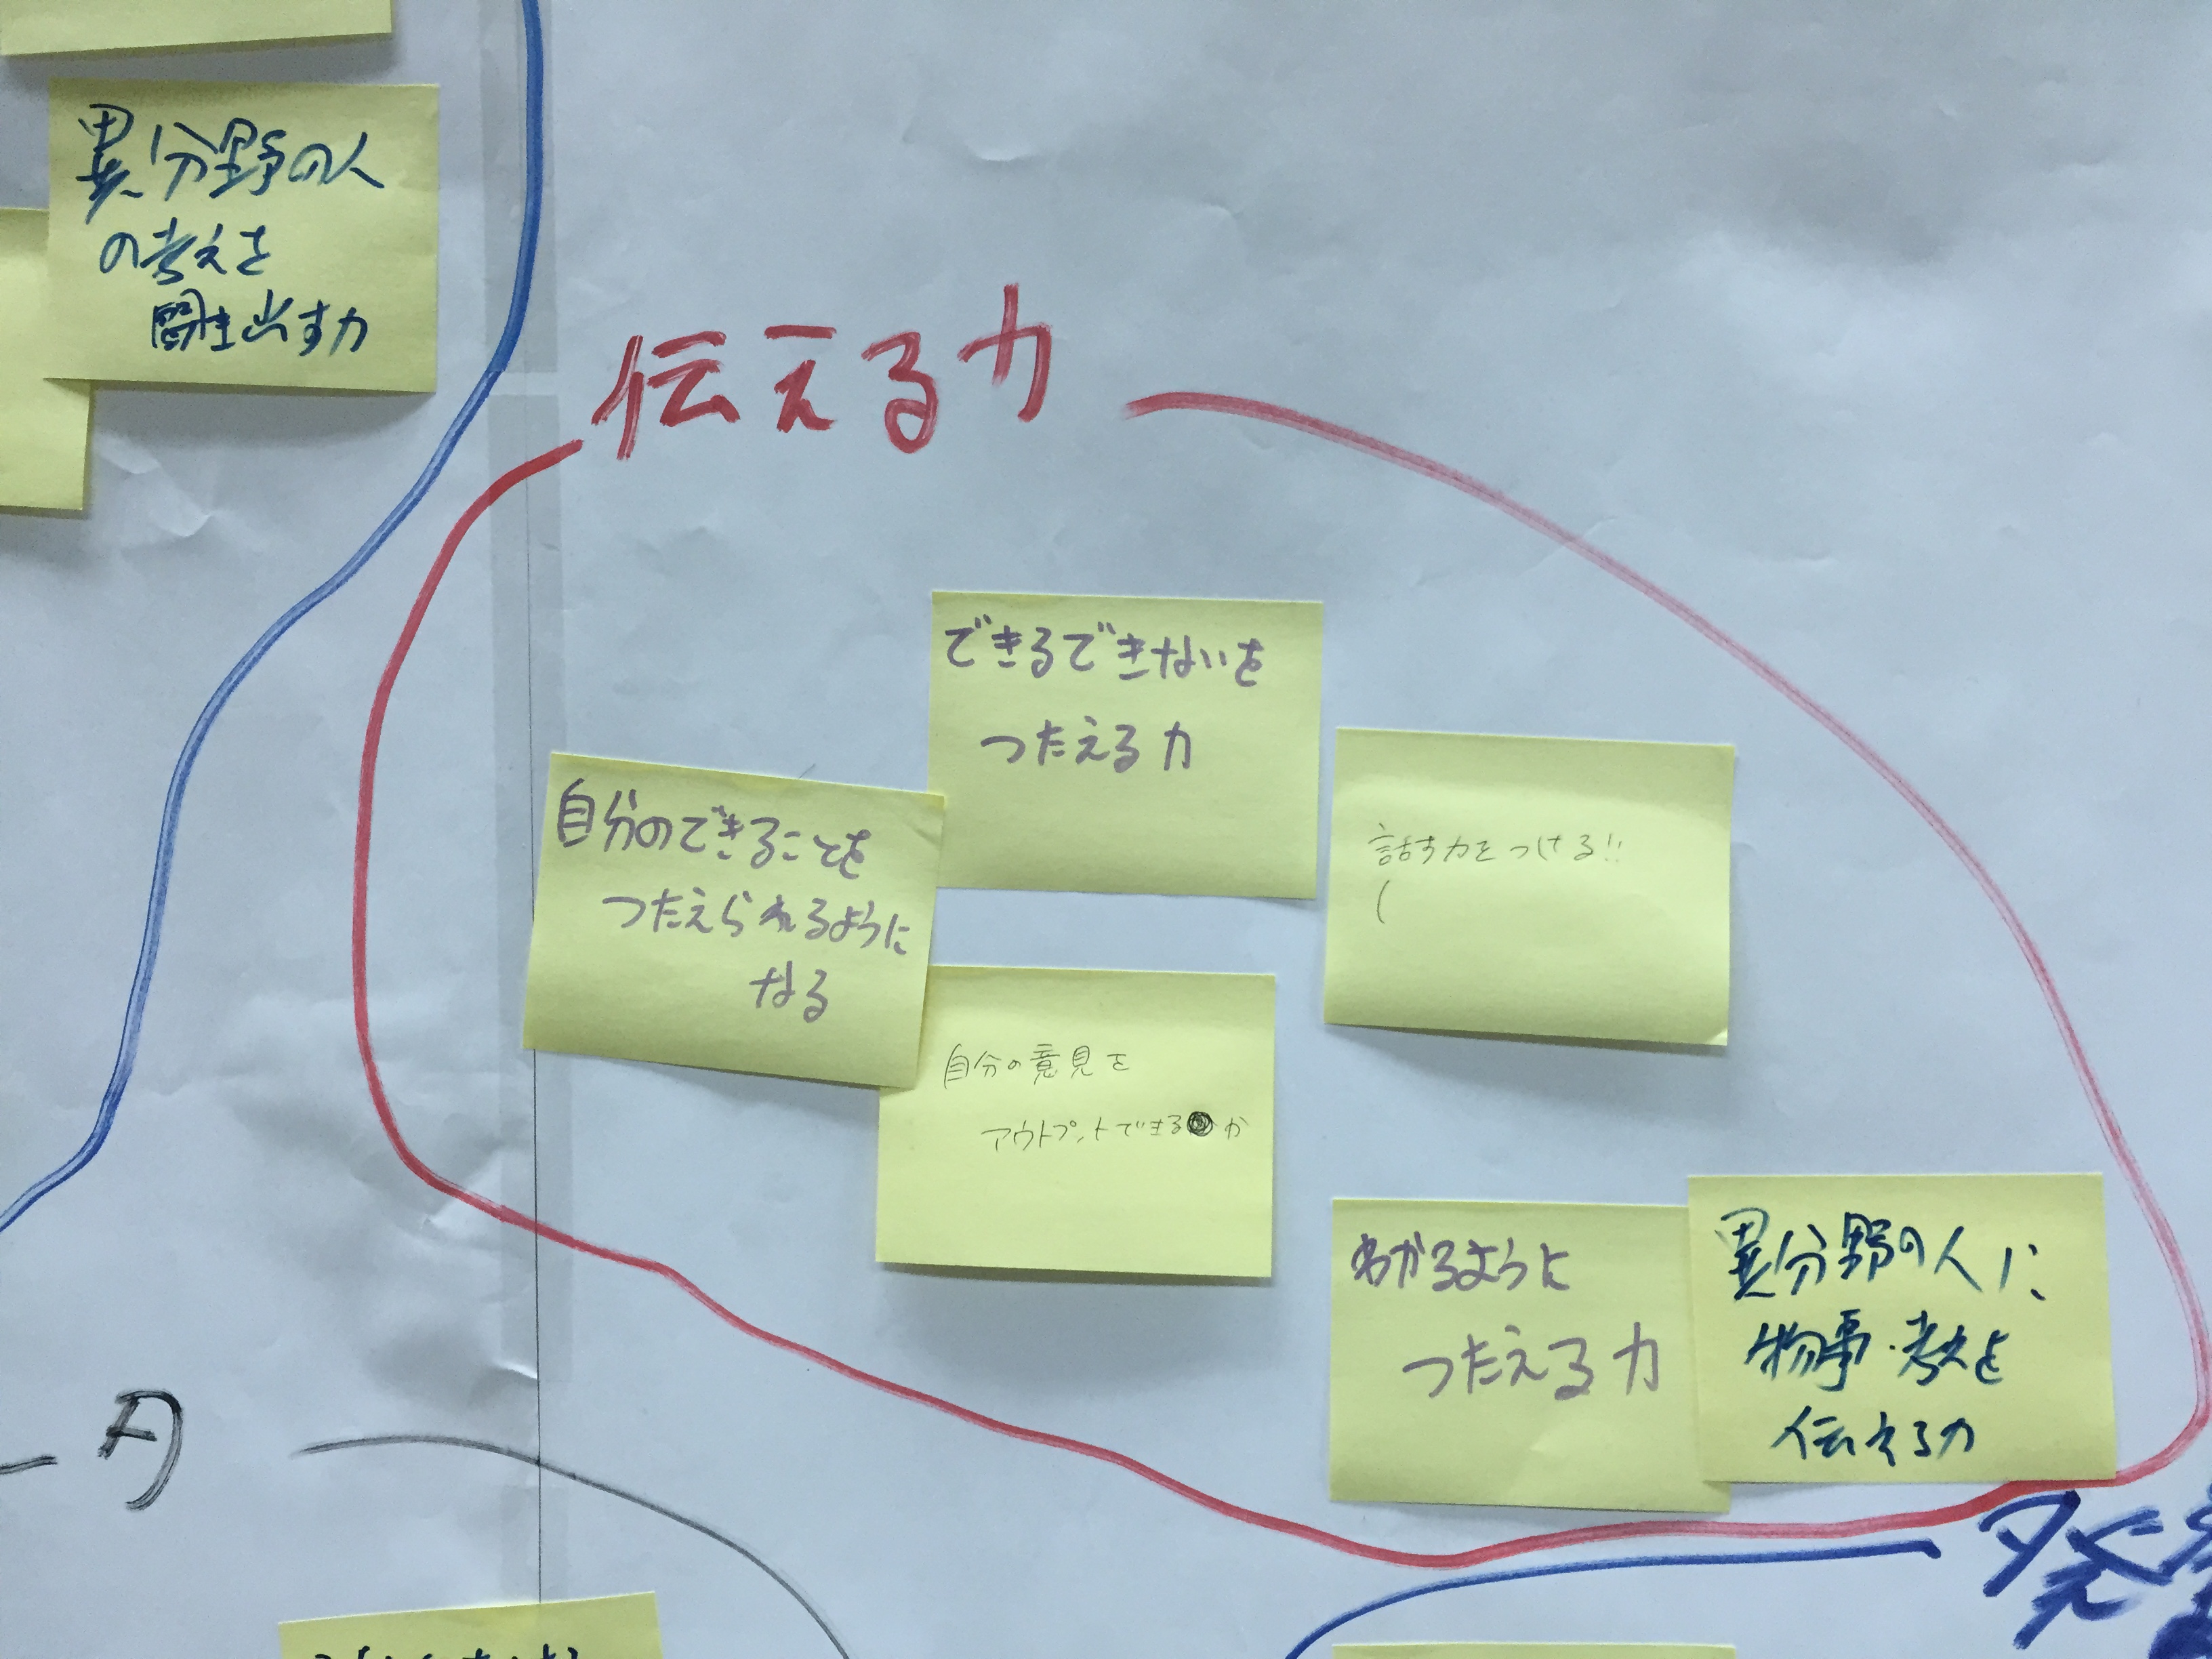 異分野の人
の考えを
聞き出す力
伝える力
できるできないを
つたえる力
自分のできることを
つたえられるように
なる
話す力をつける!!
(
自分の意見を
アウトプットできるか
わかるように
つたえる力
異分野の人に
物事・考えを
伝える力
力
発